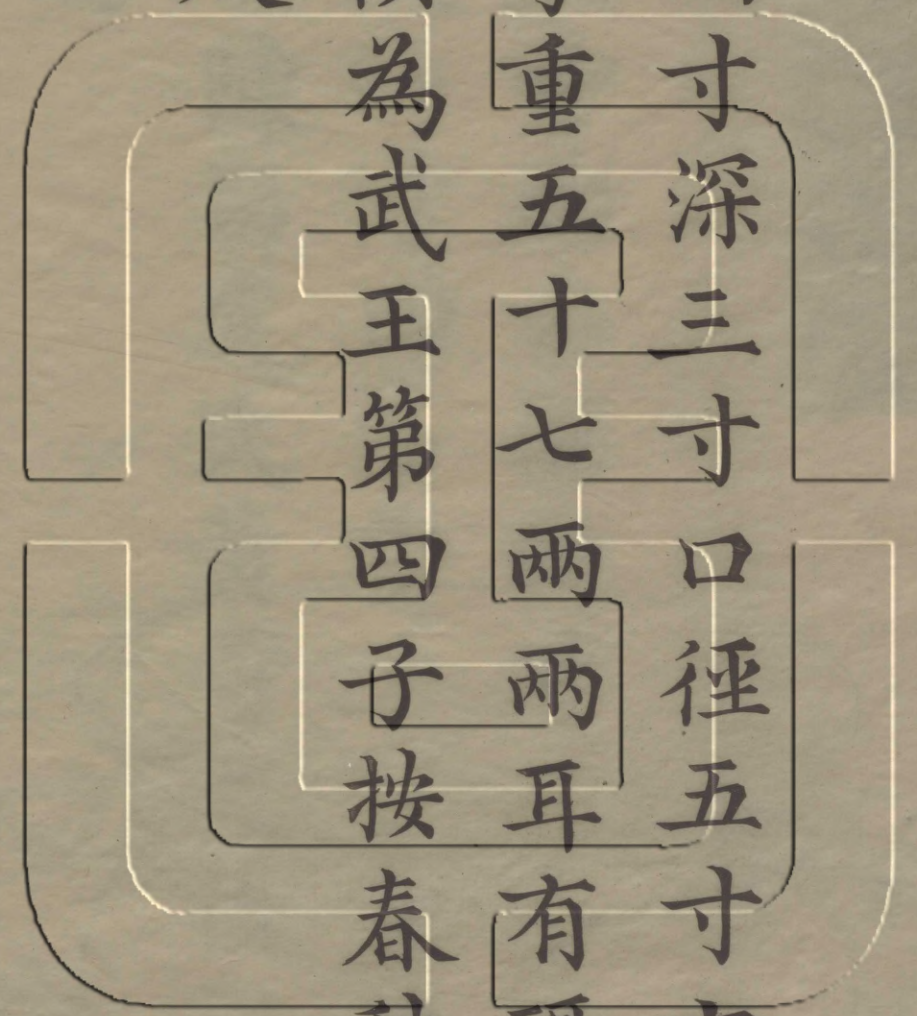 寸深三寸口徑五寸
重五十七兩兩耳有
為武王第四子按春